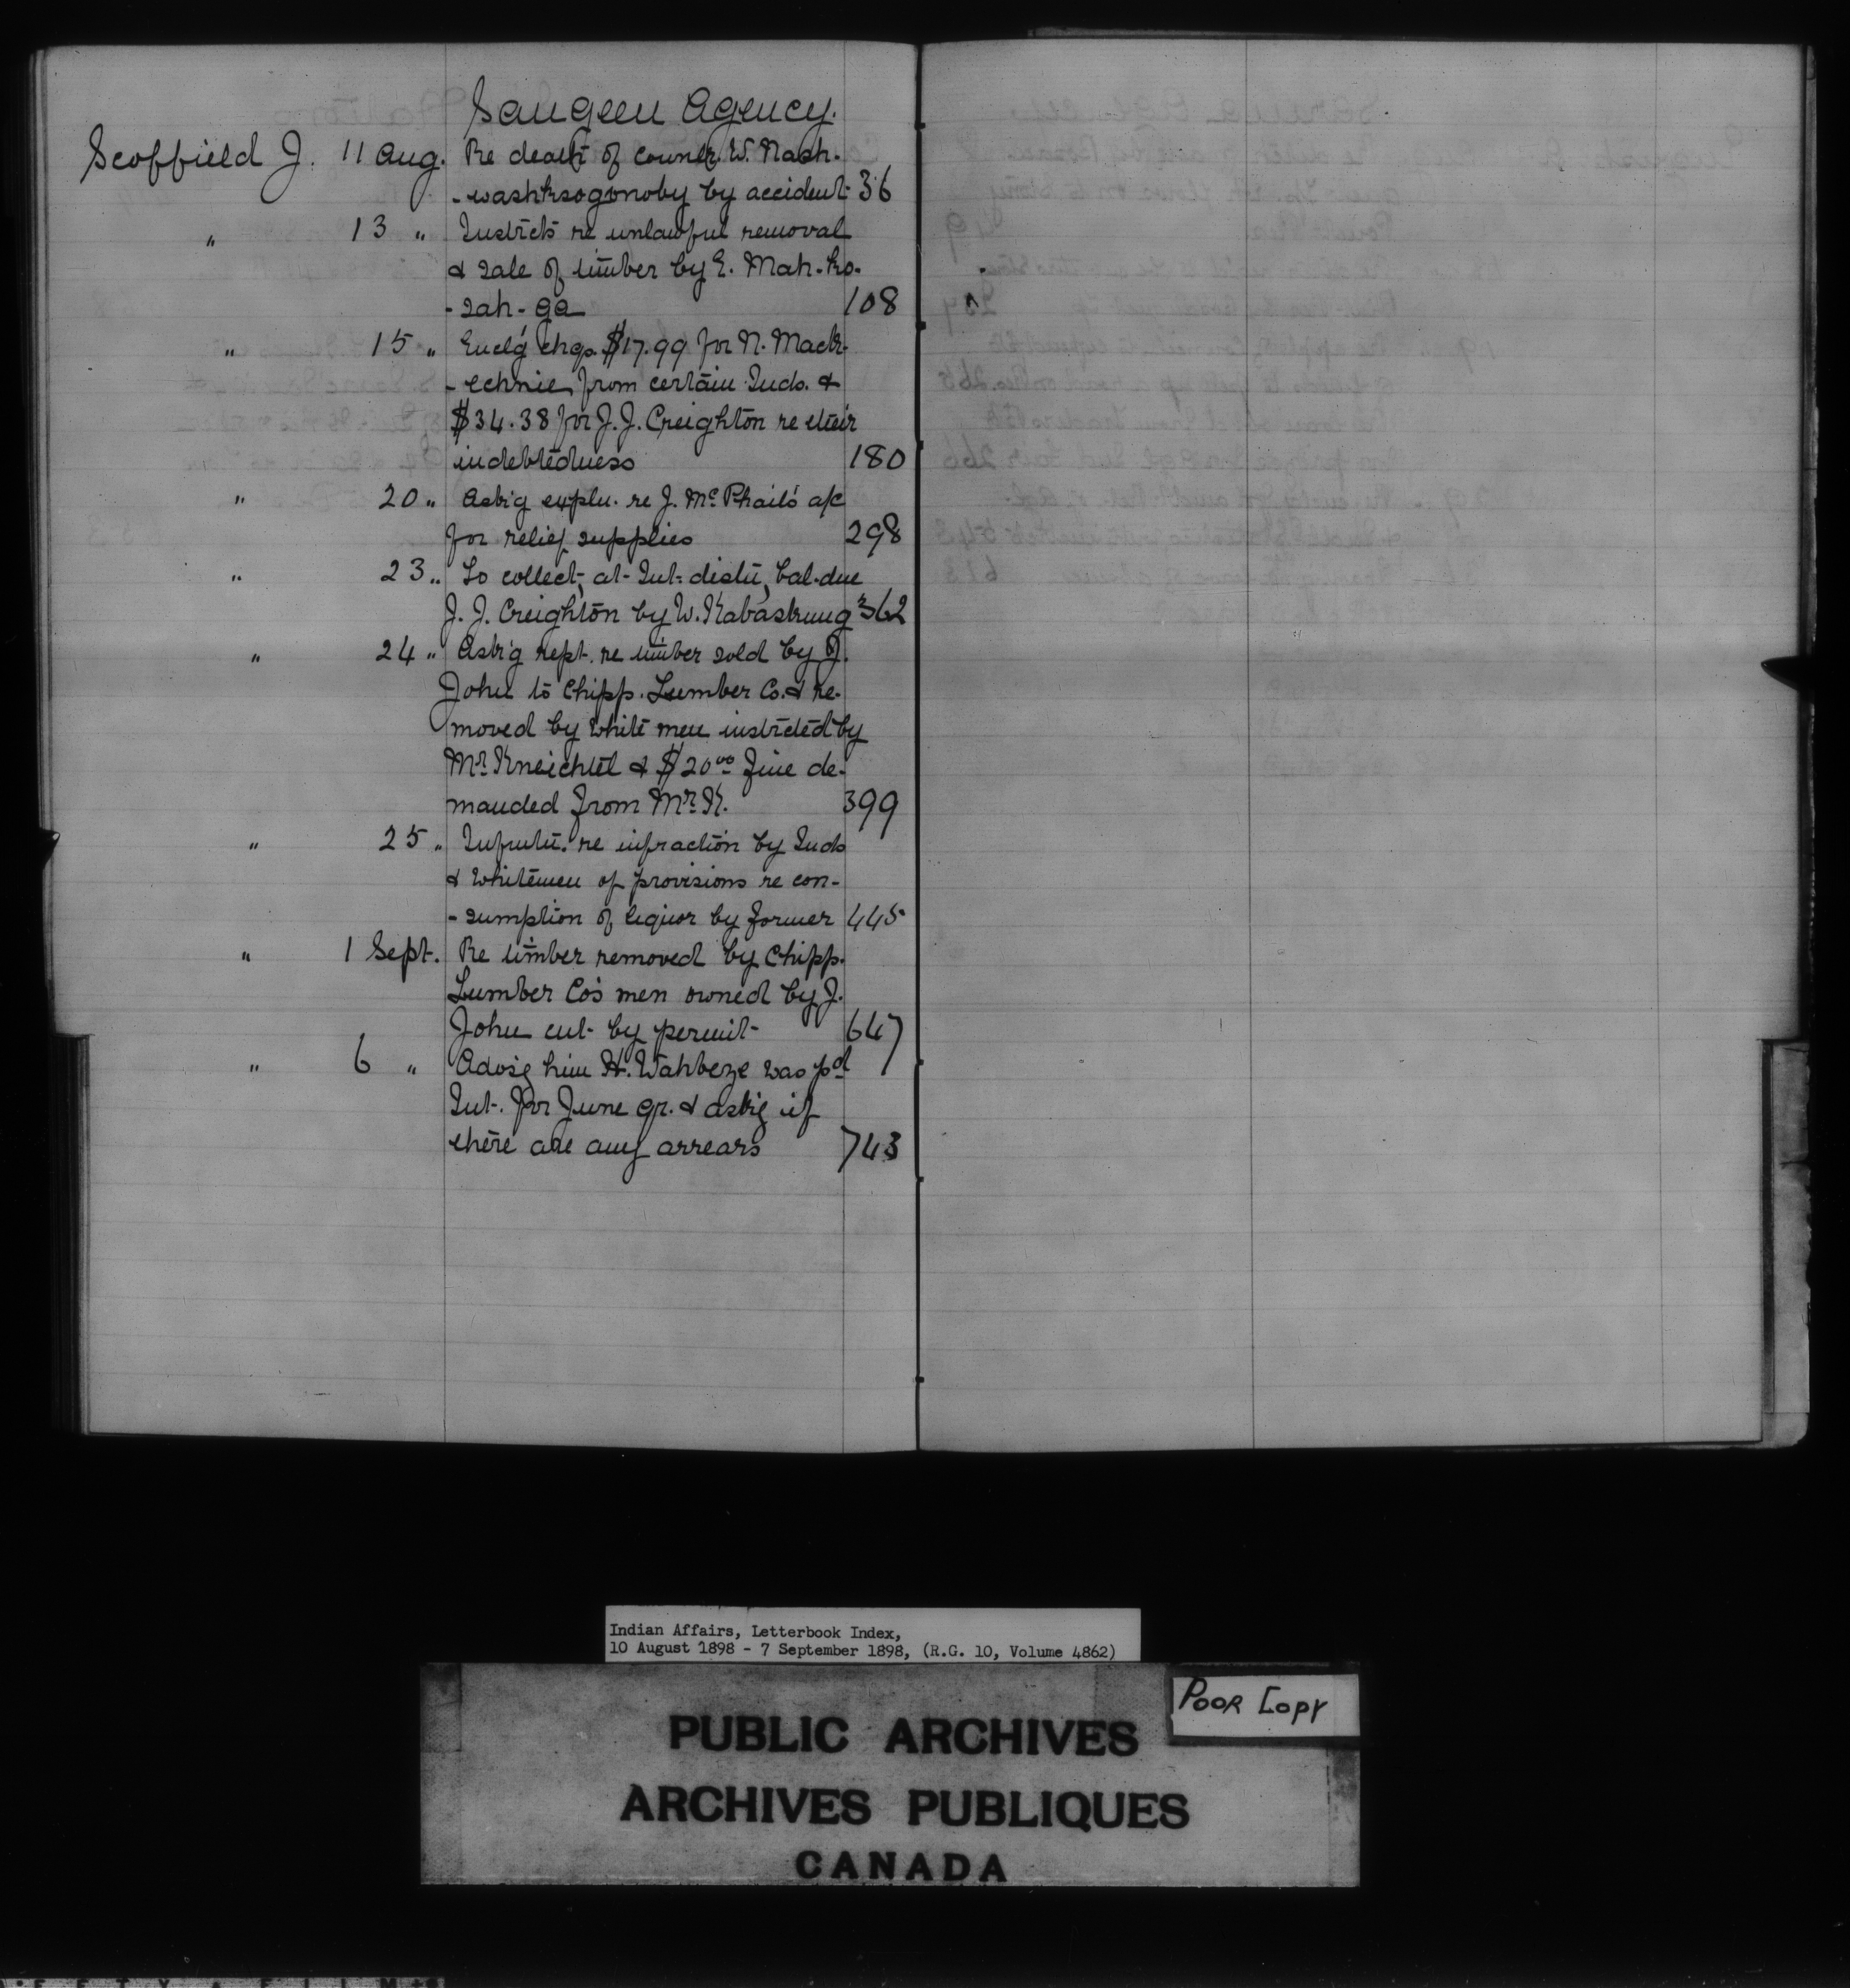 Saugeen Agency.
Scoffield J. 11 Aug. Re death of councr. W. Nash-
-washksogonoby by accident 36
" 13 " Instrcts re unlawful removal
& sale of timber by E. Mah-ko-
-sah-ga 108
" 15 " Enclg chqs. $17.99 for N. Mack-
-echnie from certain Inds. &
$34.38 for J. J. Creighton re their
indebtedness 180
" 20 " Askig expln. re J. McPhail's a/c
for relief supplies 298
" 23 " To collect, at Int. distn, bal. due
J. J. Creighton by W. Kabaskung 362
" 24 " Askig rept. re timber sold by J.
John to Chipp. Lumber Co. & re-
moved by white men instrcted by
Mr. Kneichtel & $20.00 fine de-
manded from Mr. K. 399
" 25 " Infmtn. re infraction by Inds
& Whitemen of provisions re con-
-sumption of liquor by former 445
" 1 Sept. Re timber removed by Chipp.
Lumber Co's men owned by J.
John cut by permit 647
" 6 " Advsg him H. Wahbeze was pd
Int. for June qr. & askig if
there are any arrears 743
Indian Affairs, Letterbook Index,
10 August 1898 - 7 September 1898, (R.G. 10, Volume 4862)
POOR COPY
PUBLIC ARCHIVES
ARCHIVES PUBLIQUES
CANADA